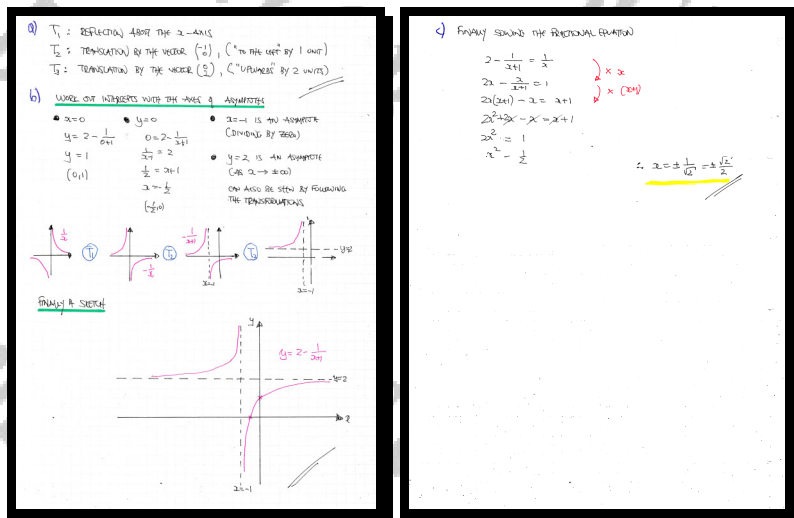 a) T₁ : REFLECTION ABOUT THE x-AXIS
T₂ : TRANSLATION BY THE VECTOR (-1 0), ("TO THE LEFT" BY 1 UNIT)
T₃ : TRANSLATION BY THE VECTOR (0 2), ("UPWARDS" BY 2 UNITS)
b) WORK OUT INTERCEPTS WITH THE AXES & ASYMPTOTES
• x=0
y = 2 - 1/(0+1)
y = 1
(0,1)
• y=0
0 = 2 - 1/(x+1)
1/(x+1) = 2
1/2 = x+1
x = -1/2
(-1/2, 0)
• x=-1 IS AN ASYMPTOTE
(DIVIDING BY ZERO)
• y=2 IS AN ASYMPTOTE
(AS x → ±∞)
CAN ALSO BE SEEN BY FOLLOWING
THE TRANSFORMATIONS
1/x
T₁
-1/x
T₂
-1/(x+1)
x=-1
T₃
y=2
x=-1
FINALLY A SKETCH
y
y = 2 - 1/(x+1)
y=2
x
x=-1
c) FINALLY SOLVING THE FRACTIONAL EQUATION
2 - 1/(x+1) = 1/x
× x
2x - x/(x+1) = 1
× (x+1)
2x(x+1) - x = x+1
2x² + 2x - x = x + 1
2x² = 1
x² = 1/2
∴ x = ± 1/√2 = ± √2/2